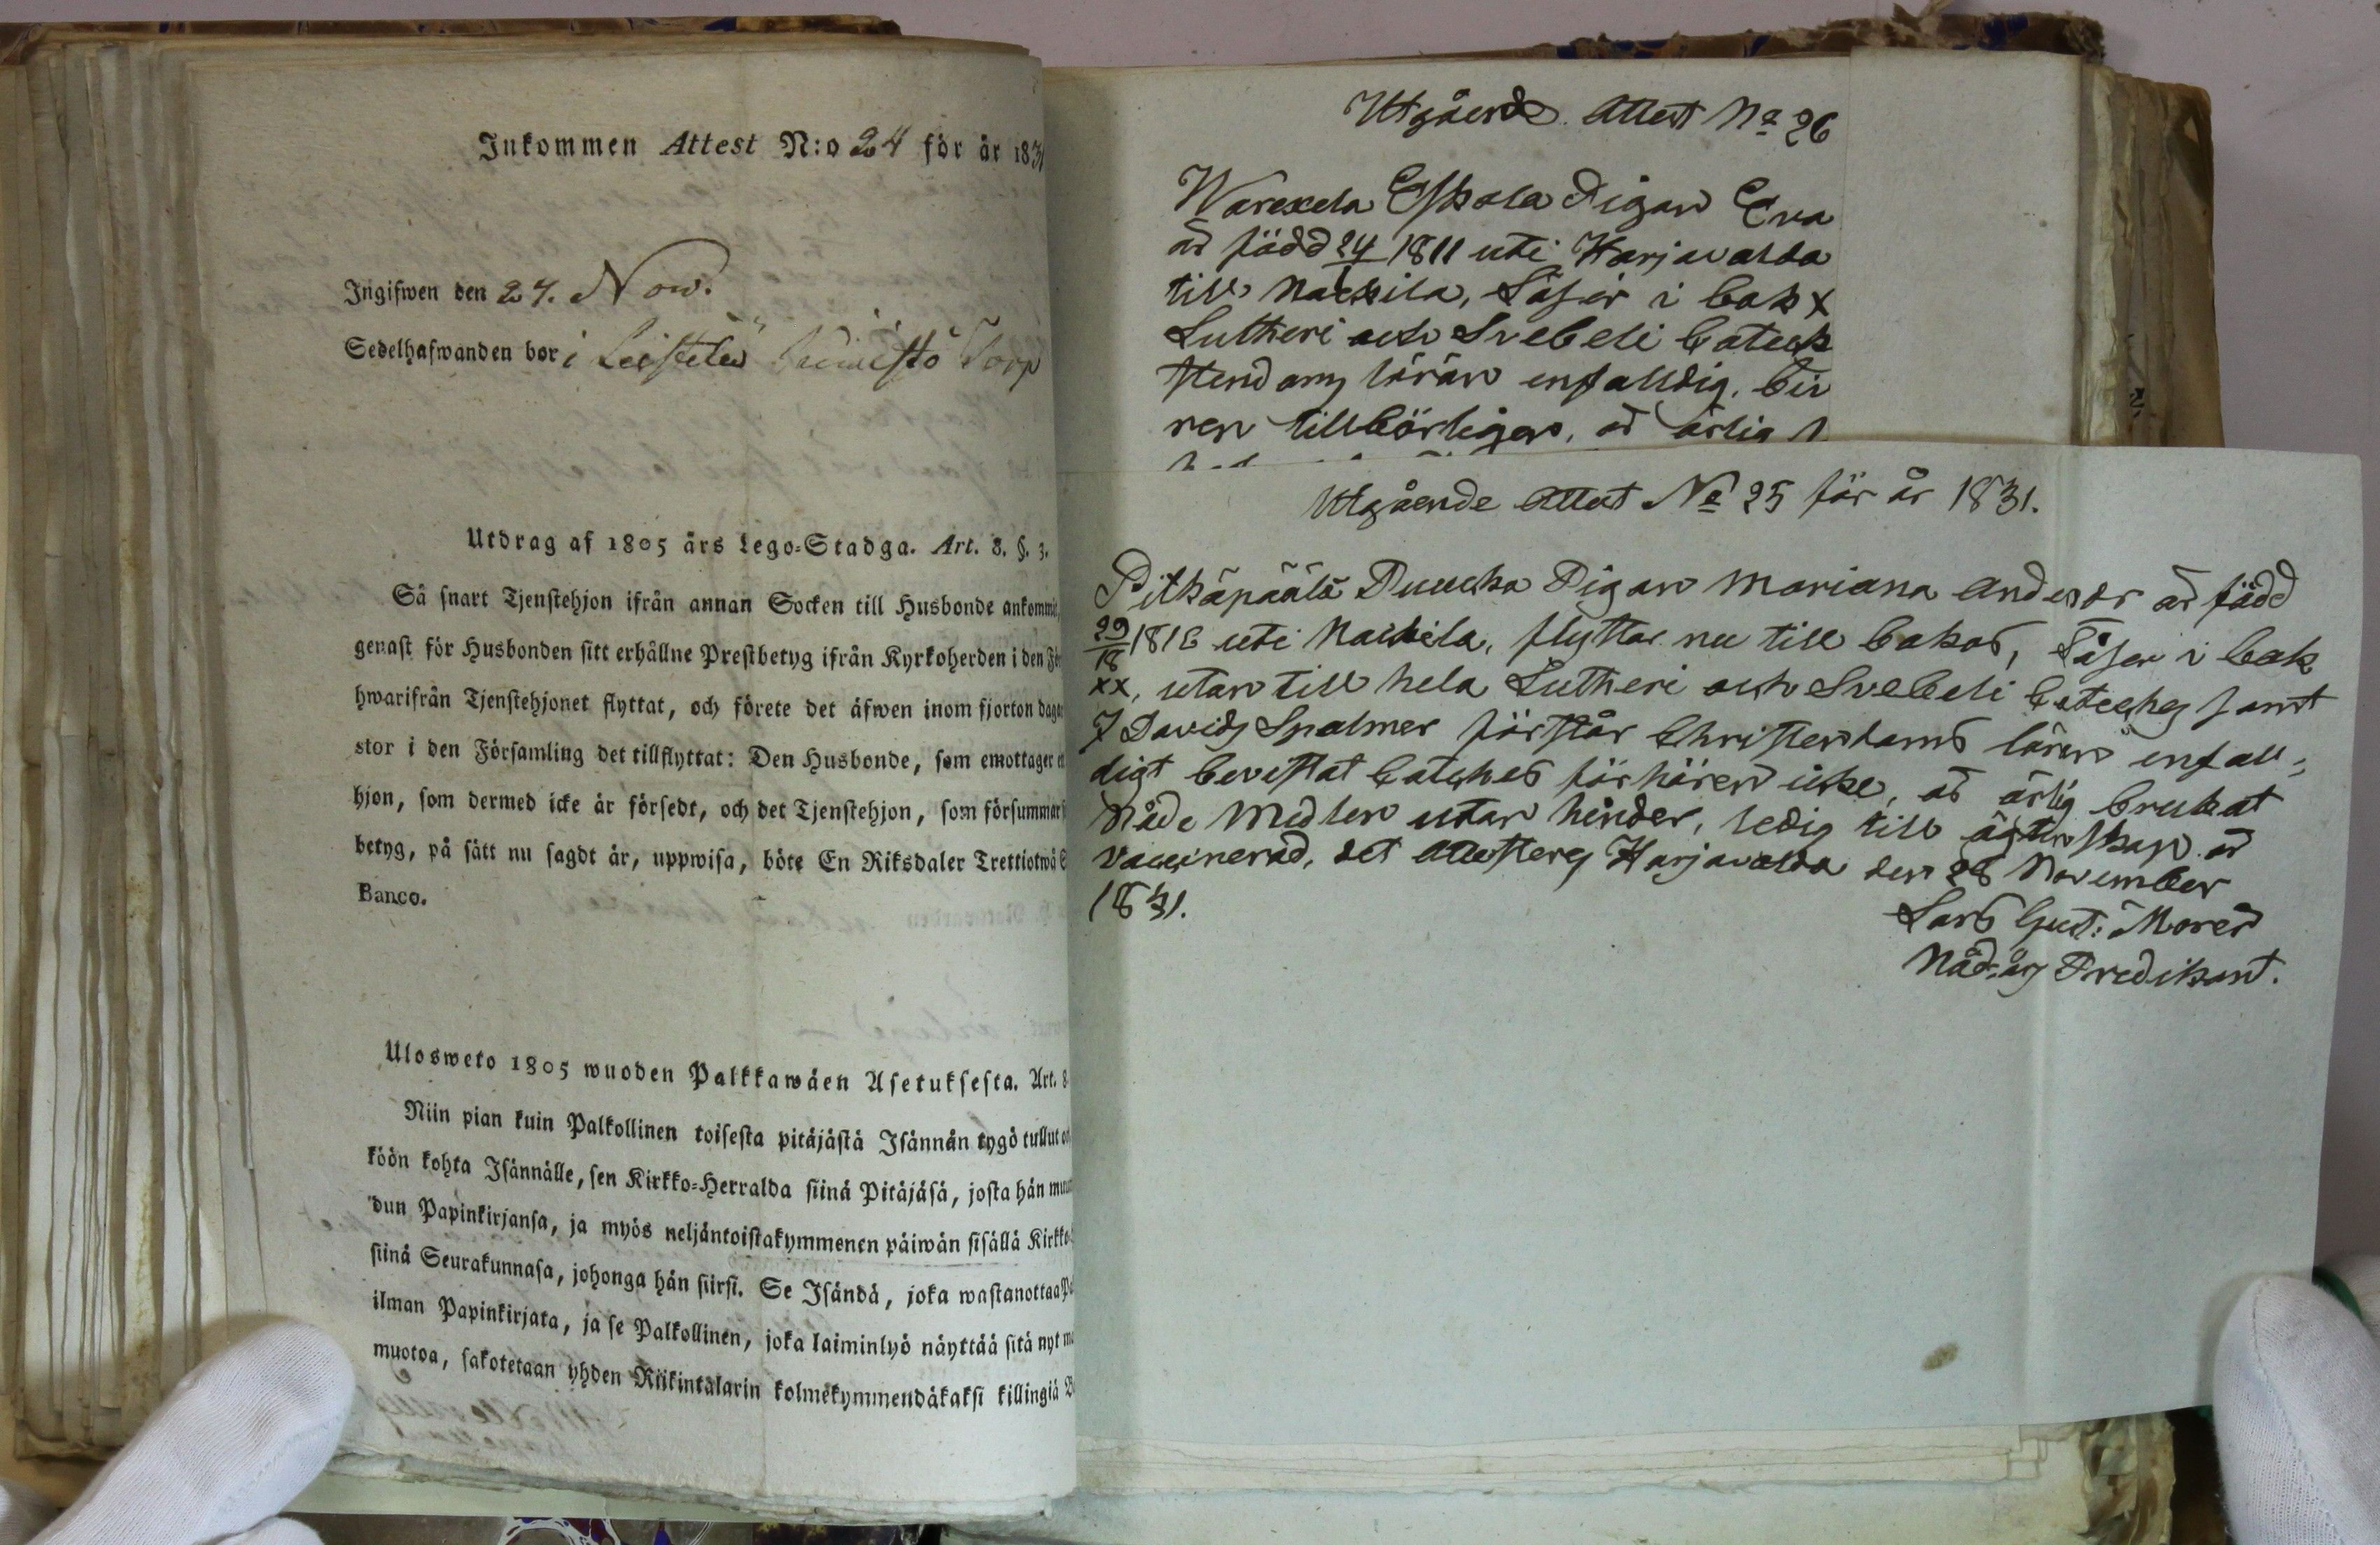 Inkommen Attest N:o 24 för år 1831
Ingifwen den 24. Nov.
Sedelhafwanden bor i Torp
Utdrag af 1805 års Lego-Stadga. Art. 8. §. 3.
Så snart Tjenstehjon ifrån annan Socken till Husbonde ankommit,
genast för Husbonden sitt erhållne Prestbetyg ifrån Kyrkoherden i den
hwarifrån Tjenstehjonet flyttat, och förete det äfwen inom fjorton dagar
stor i den Församling det tillflyttat: Den Husbonde, som emottager
hjon, som dermed icke är försedt, och det Tjenstehjon, som försummar
betyg, på sätt nu sagdt är, uppwisa, böte En Riksdaler Trettiotwå
Banco.
Ulosweto 1805 wuoden Palkkawäen Asetuksesta. Art. 8.
Niin pian kuin Palkollinen toisesta pitäjästä Isännän tygö tullut
köön kohta Isännälle, sen Kirkko-Herralda siinä Pitäjäsä, josta hän
dun Papinkirjansa, ja myös neljäntoistakymmenen päiwän sisällä Kirkko-
siinä Seurakunnasa, johonga hän siirsi. Se Isändä, joka wastanottaa
ilman Papinkirjata, ja se Palkollinen, joka laiminlyö näyttää sitä nyt
muotoa, sakotetaan yhden Riikintalarin kolmekymmendäkaksi killingiä
Utgåend. Attest No 26
Eskola Pigan Eva
är född 24/ 1811 uti Harjavalda
till Nackila, Läser i bok x
Lutheri och Svebeli Catech
stendomslärän enfalldig,
ren tillbörligen, är ärlig
Utgående Attest No 25 för år 1831.
Pitkäpäälä Pigan Mariana Andersdr är född
29/18 181 uti Nackila, flyttar nu till bakas, Läser i bok
xx, utan till hela Lutheri och Svebeli Cateches samt
7 Davids Spalmer förstår Christendoms lären enfall-
digt bevistat Cateches förhören icke, är ärlig brukat
Nåde Medlen utan hinder, ledig till ägtenskap är
vaccinerad, det Attesteras Harjavalda den 28 November
1831.
Lars Gust: Moren
Nåd. års Predikant.